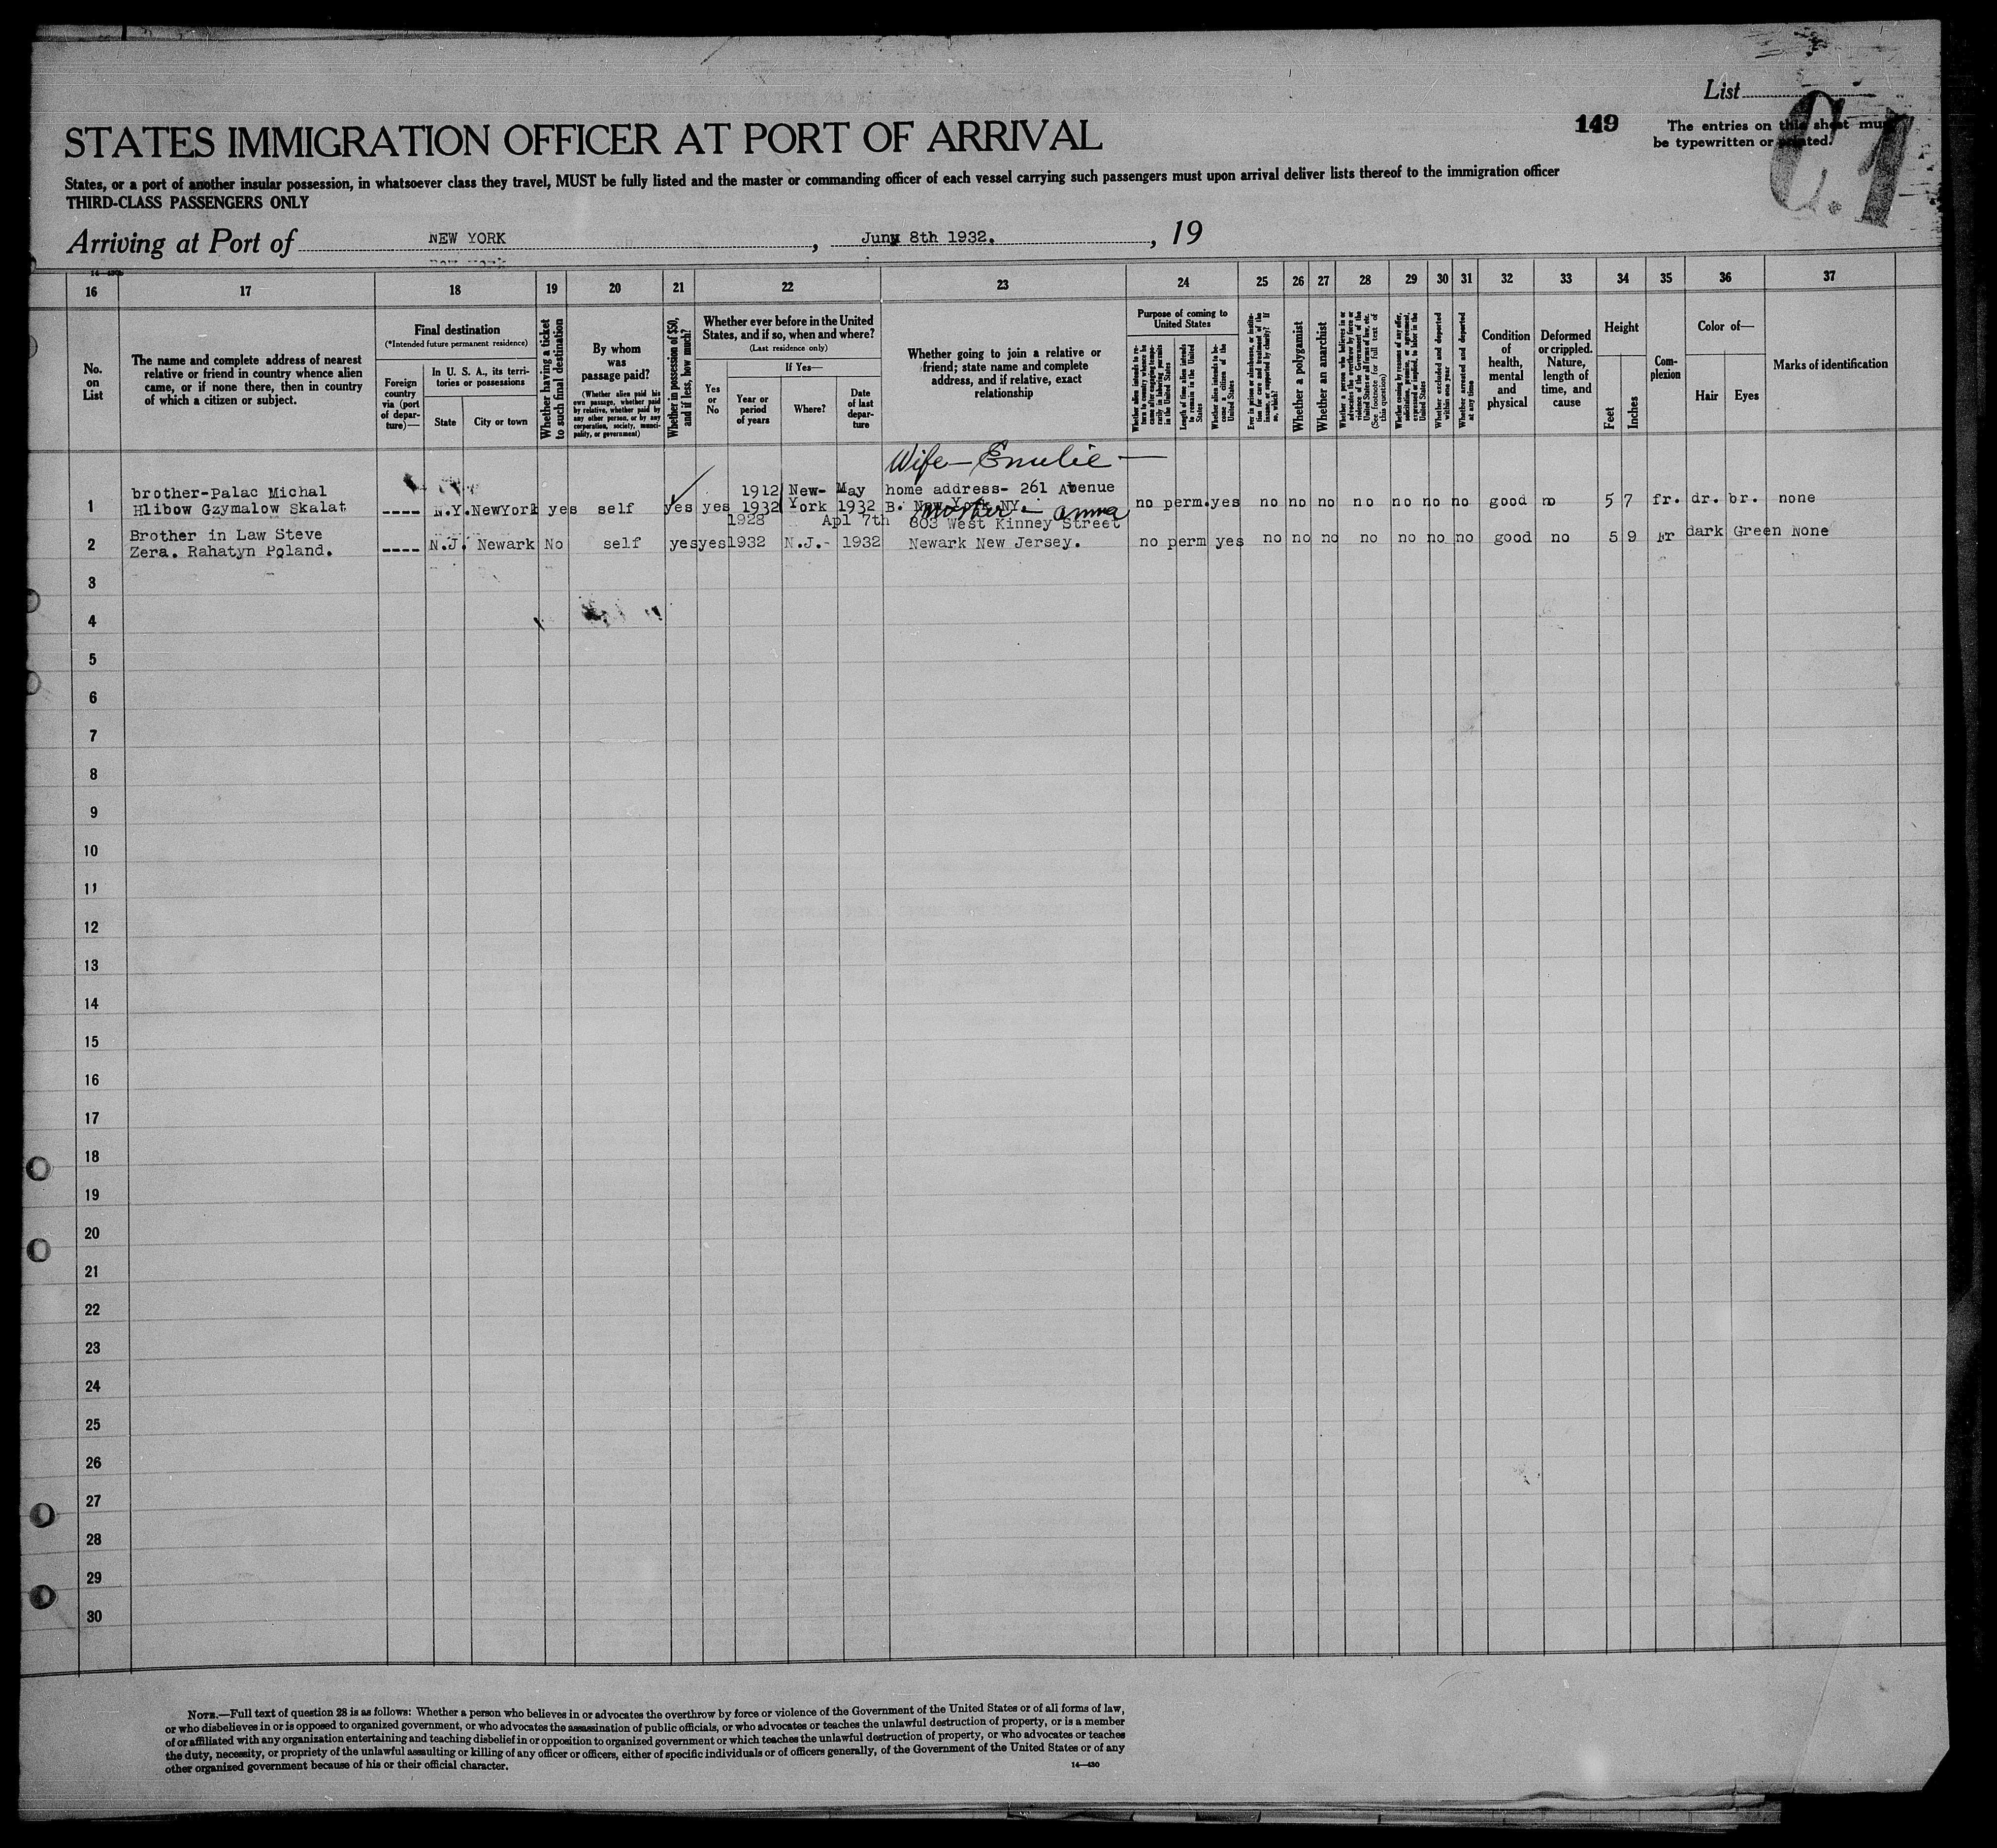 List
149
The entries on this sheet must
be typewritten or printed.
C.1
STATES IMMIGRATION OFFICER AT PORT OF ARRIVAL
States, or a port of another insular possession, in whatsoever class they travel, MUST be fully listed and the master or commanding officer of each vessel carrying such passengers must upon arrival deliver lists thereof to the immigration officer
THIRD-CLASS PASSENGERS ONLY
Arriving at Port of NEW YORK, June 8th 1932., 19
16 17 18 19 20 21 22 23 24 25 26 27 28 29 30 31 32 33 34 35 36 37
No.
on
List
The name and complete address of nearest
relative or friend in country whence alien
came, or if none there, then in country
of which a citizen or subject.
Final destination
(*Intended future permanent residence)
Foreign
country
via (port
of depar-
ture)—
In U. S. A., its terri-
tories or possessions
State
City or town
Whether having a ticket
to such final destination
By whom
was
passage paid?
(Whether alien paid his
own passage, whether paid
by relative, whether paid by
any other person, or by any
corporation, society, munici-
pality, or government)
Whether in possession of $50,
and if less, how much?
Whether ever before in the United
States, and if so, when and where?
(Last residence only)
Yes
or
No
If Yes—
Year or
period
of years
Where?
Date
of last
depar-
ture
Whether going to join a relative or
friend; state name and complete
address, and if relative, exact
relationship
Purpose of coming to
United States
Whether alien intends to re-
turn to country whence he
came after engaging tempo-
rarily in laboring pursuits
in the United States
Length of time alien intends
to remain in the United
States
Whether alien intends to be-
come a citizen of the
United States
Ever in prison or almshouse, or institu-
tion for care and treatment of the
insane, or supported by charity? If
so, which?
Whether a polygamist
Whether an anarchist
Whether a person who believes in or
advocates the overthrow by force or
violence of the Government of the
United States or all forms of law, etc.
(See footnote for full text of
this question)
Whether coming by reason of any offer,
solicitation, promise, or agreement,
expressed or implied, to labor in the
United States
Whether excluded and deported
within one year
Whether arrested and deported
at any time
Condition
of
health,
mental
and
physical
Deformed
or crippled.
Nature,
length of
time, and
cause
Height
Feet
Inches
Com-
plexion
Color of—
Hair
Eyes
Marks of identification
Wife — Emilie —
brother-Palac Michal 1912 New- May home address- 261 Abenue
1 Hlibow Gzymalow Skalat ---- N.Y. NewYork yes self yes yes 1932 York 1932 B. New York NY. no perm. yes no no no no no no no good no 5 7 fr. dr. br. none
Mother — Anna
Brother in Law Steve 1928 Apl 7th 803 West Kinney Street
2 Zera. Rahatyn Poland. ---- N.J. Newark No self yes yes 1932 N.J.- 1932 Newark New Jersey. no perm yes no no no no no no no good no 5 9 Fr dark Green None
3
4
5
6
7
8
9
10
11
12
13
14
15
16
17
18
19
20
21
22
23
24
25
26
27
28
29
30
NOTE.—Full text of question 28 is as follows: Whether a person who believes in or advocates the overthrow by force or violence of the Government of the United States or of all forms of law,
or who disbelieves in or is opposed to organized government, or who advocates the assassination of public officials, or who advocates or teaches the unlawful destruction of property, or is a member
of or affiliated with any organization entertaining and teaching disbelief in or opposition to organized government or which teaches the unlawful destruction of property, or who advocates or teaches
the duty, necessity, or propriety of the unlawful assaulting or killing of any officer or officers, either of specific individuals or of officers generally, of the Government of the United States or of any
other organized government because of his or their official character.
14—430